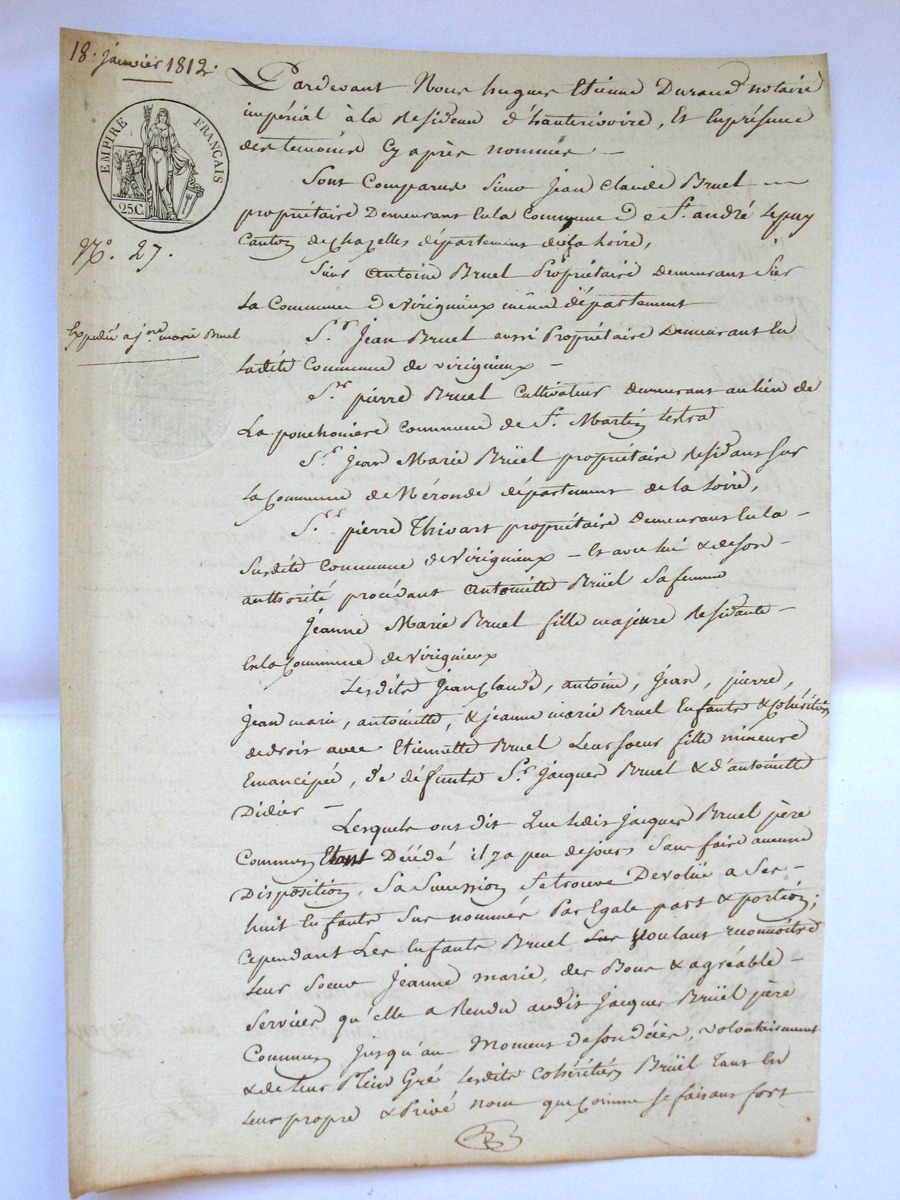 18. janvier 1812.
EMPIRE FRANÇAIS
25C
N.º 27.
Expédié a j.ne marie Bruel
Pardevant Nous hugues Etienne Durand notaire
impérial à la Residence d'hauterivoire, Et En présence
des temoins Cy après nommés –
Sont Comparus Sieur Jean Claude Bruel —
propriétaire Demeurant En la Commune de St. andré Lepuy
Canton de Chazelles département de la Loire,
Sieur Antoine Bruel Propriétaire demeurant Sur
La Commune de Virignieux même département
S.r Jean Bruel aussi Propriétaire Demeurant En
Ladite Commune de virignieux –
S.r pierre Bruel Cultivateur demeurant au lieu de
La ponchoniere Commune de St. Martin Lestra
S.r Jean Marie Brüel propriétaire Residant Sur
La Commune de Néronde département de la Loire,
S.r pierre Thivart propriétaire demeurant En la –
Susdite Commune de Virignieux – Et avec lui & de son –
authorité procédant Antoinette Brüel Sa femme
Jeanne Marie Bruel fille majeure Residante –
En la Commune de Virignieux
Lesdits Jean Claude, antoine, Jean, pierre,
Jean marie, antoinette, & jeanne marie Bruel Enfants & Cohéritiers
de droit avec Etiennette Bruel Leur Soeur fille mineure
Emancipée, de défunts S.r Jacques Bruel & d'antoinette
Didier –
Lesquels ont dit Que ledit Jacques Bruel père
Commun Etant Décédé il y a peu de jours Sans faire aucune
Disposition, Sa Succession Se trouve Devolüe a Ses –
huit Enfants Sus nommés Par Egale part & portion;
Cependant Les Enfants Bruel Voulant reconnoitre
Leur Soeur Jeanne marie, des Bons & agréable –
Services qu'elle a Rendu audit Jacques Brüel père
Commun Jusqu'au Moment de son décès, volontairement
& de leur Plein Gré Lesdits Cohéritiers Brüel Tant En
Leur propre & Privé nom que Comme se faisant fort